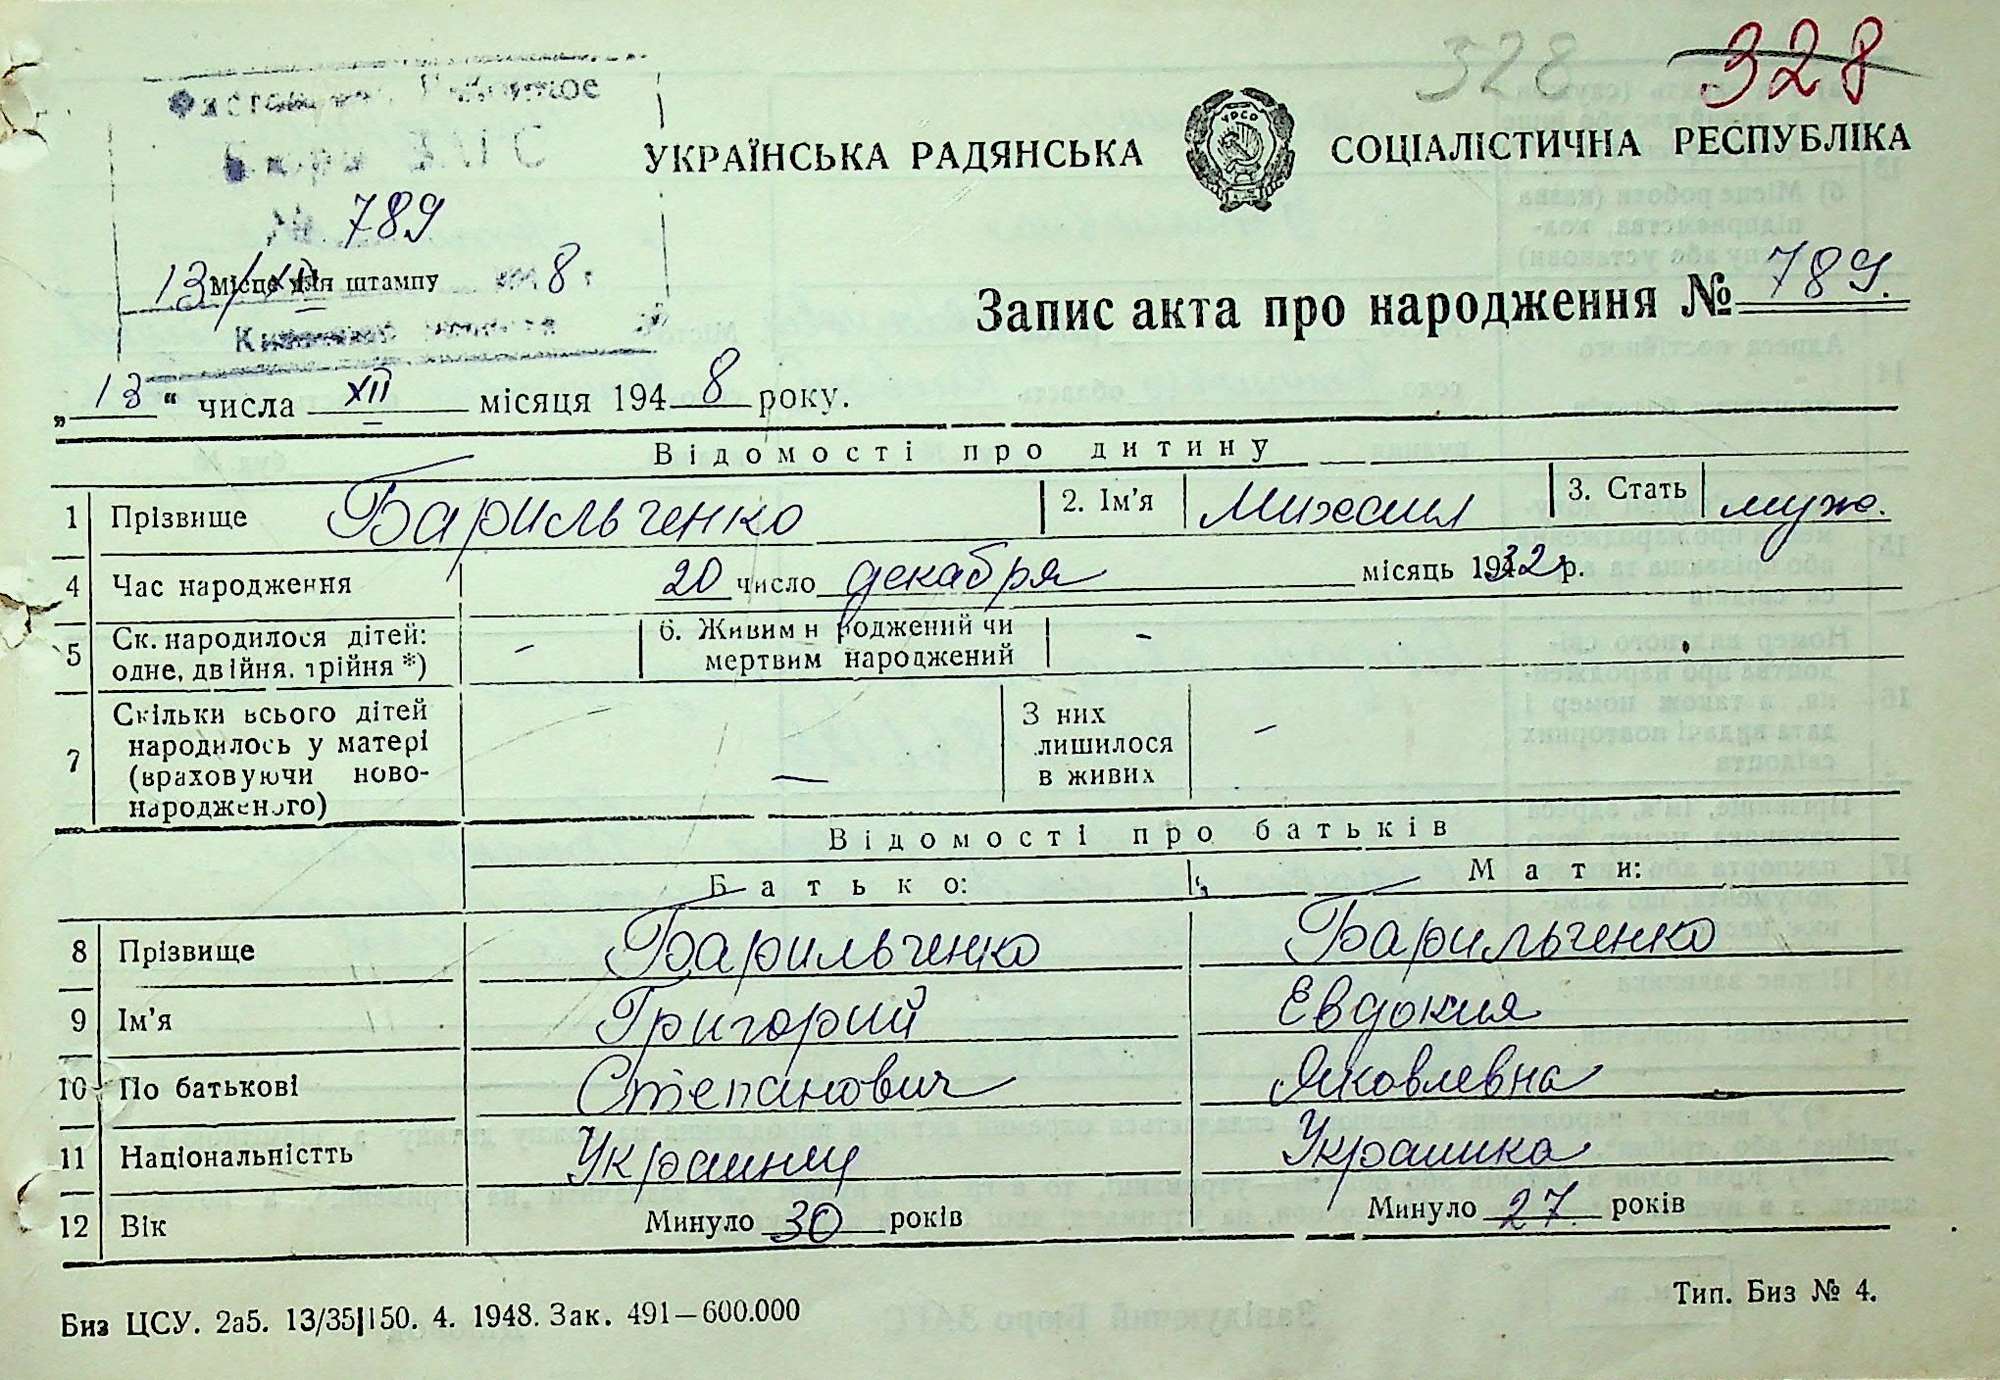 328 328
Бюро ЗАГС
УКРАЇНСЬКА РАДЯНСЬКА СОЦІАЛІСТИЧНА РЕСПУБЛІКА
УРСР
№ 789
13/XII Місце для штампу 8 г
Запис акта про народження № 789.
„13“ числа XII місяця 1948 року.
Відомості про дитину
1 Прізвище Барильченко 2. Ім'я Михаил 3. Стать муж.
4 Час народження 20 число декабря місяць 1932 р.
5 Ск. народилося дітей: одне, двійня, трійня *) – 6. Живим народжений чи мертвим народжений –
7 Скільки всього дітей народилось у матері (враховуючи ново-народженого) — З них лишилося в живих –
Відомості про батьків
Батько: Мати:
8 Прізвище Барильченко Барильченко
9 Ім'я Григорий Евдокия
10 По батькові Степанович Яковлевна
11 Національністть Украинец Украинка
12 Вік Минуло 30 років Минуло 27. років
Биз ЦСУ. 2а5. 13/35|150. 4. 1948. Зак. 491—600.000 Тип. Биз № 4.